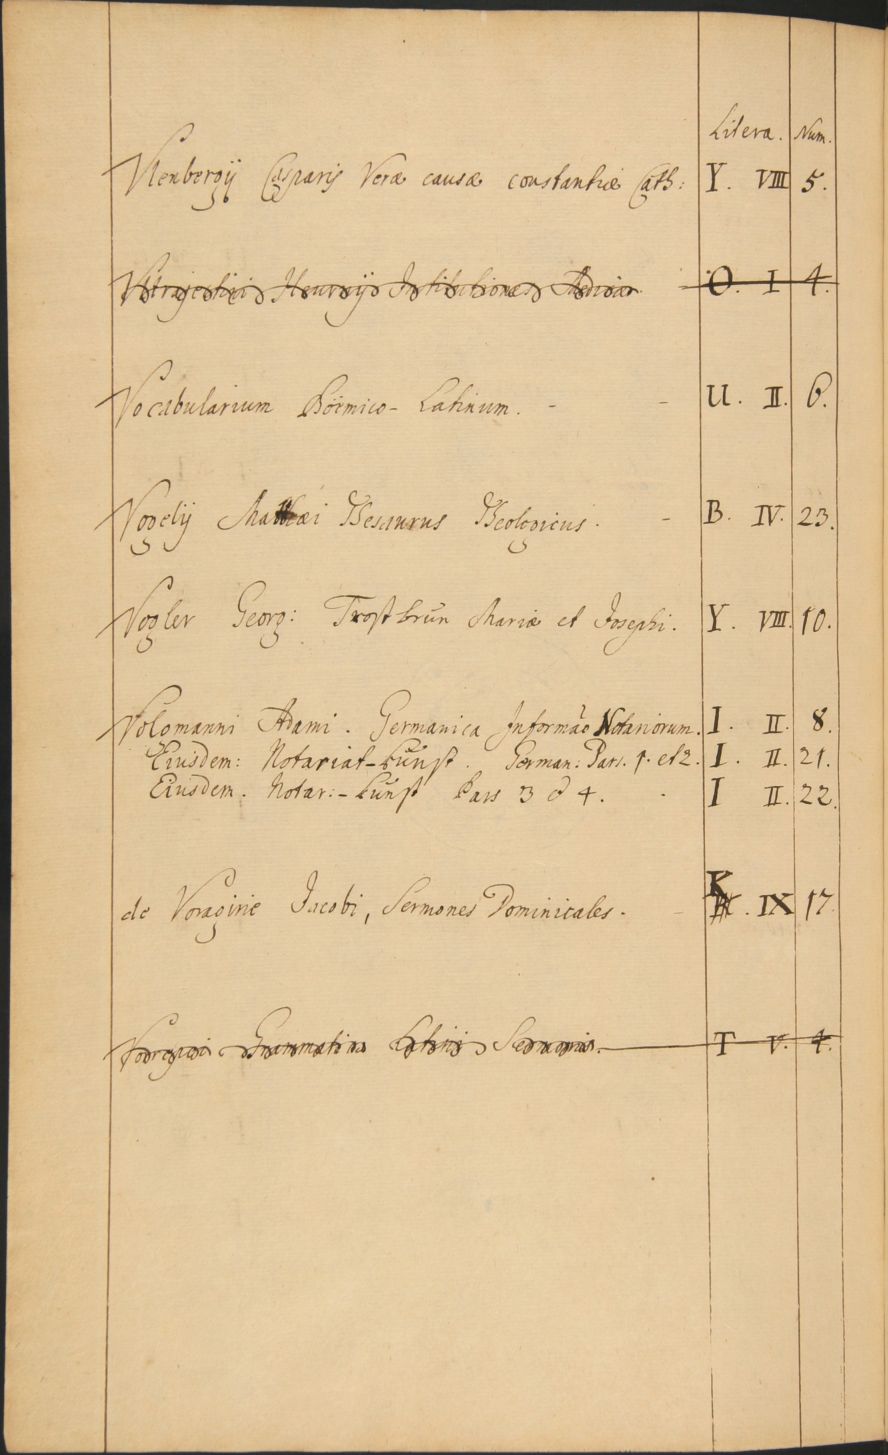 Litera. Num.
Vlenbergij Casparis Veræ causæ constantiæ Cath: Y. VIII 5.
Henricij Institutiones O. I 4.
Vocabularium Böemico-Latinum. - - U. II. 6.
Vogelij Matthæi Thesaurus Theologicus. - B. IV. 23.
Vogler Georg: Trostbrun Mariæ et Josephi. Y. VIII. 10.
Volcmanni Adami. Germanica Informão Notariorum. I. II. 8.
Eiusdem: Notariat-Kunst. German: Pars. 1. et 2. I. II. 21.
Eiusdem. Notar:-Kunst Pars 3 & 4. - I II. 22.
de Voragine Jacobi, Sermones Dominicales. - K. IX 17.
Grammatica Latini Sermonis. T V. 4.